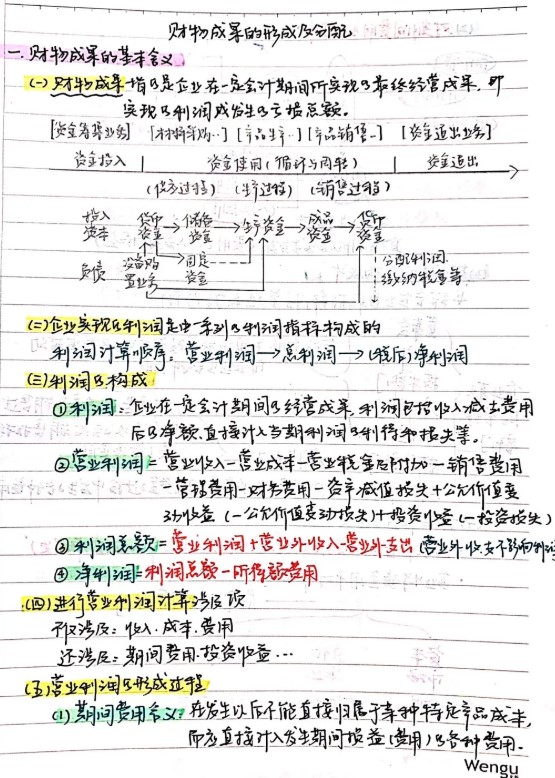 财物成果的形成及分配
一.财物成果的基本含义
(一)财物成果指的是企业在一定会计期间所实现的最终经营成果,即
实现的利润或发生的亏损总额。
[资金筹集业务] [材料采购..] [产品生产..] [产品销售..] [资金退出业务]
资金投入 资金使用(循环与周转) 资金退出
(供应过程) (生产过程) (销售过程)
投入资本 货币资金 → 储备资金 → 生产资金 → 成品资金 → 货币资金
负债 设备购置业务 固定资金 分配利润、缴纳税金等
(二)企业实现的利润是由一系列的利润指标构成的
利润计算顺序:营业利润→总利润→(税后)净利润
(三)利润的构成
①利润:企业在一定会计期间的经营成果,利润包括收入减去费用
后的净额、直接计入当期利润的利得和损失等。
②营业利润=营业收入-营业成本-营业税金及附加-销售费用
-管理费用-财务费用-资产减值损失+公允价值变
动收益(-公允价值变动损失)+投资收益(-投资损失)
③利润总额=营业利润+营业外收入-营业外支出(营业外收支不影响利润
④净利润=利润总额-所得额费用
(四)进行营业利润计算涉及项
不仅涉及:收入.成本.费用
还涉及:期间费用.投资收益...
(五)营业利润的形成过程
(1)期间费用含义:在发生以后不能直接归属于某种特定产品成本,
而应直接计入发生期间损益(费用)的各种费用.
Wengu